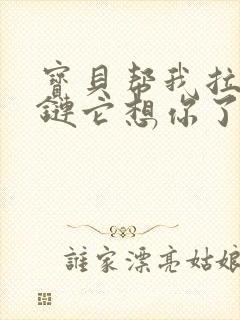 寶貝幫我拉
鏈它想你了
誰家漂亮姑娘